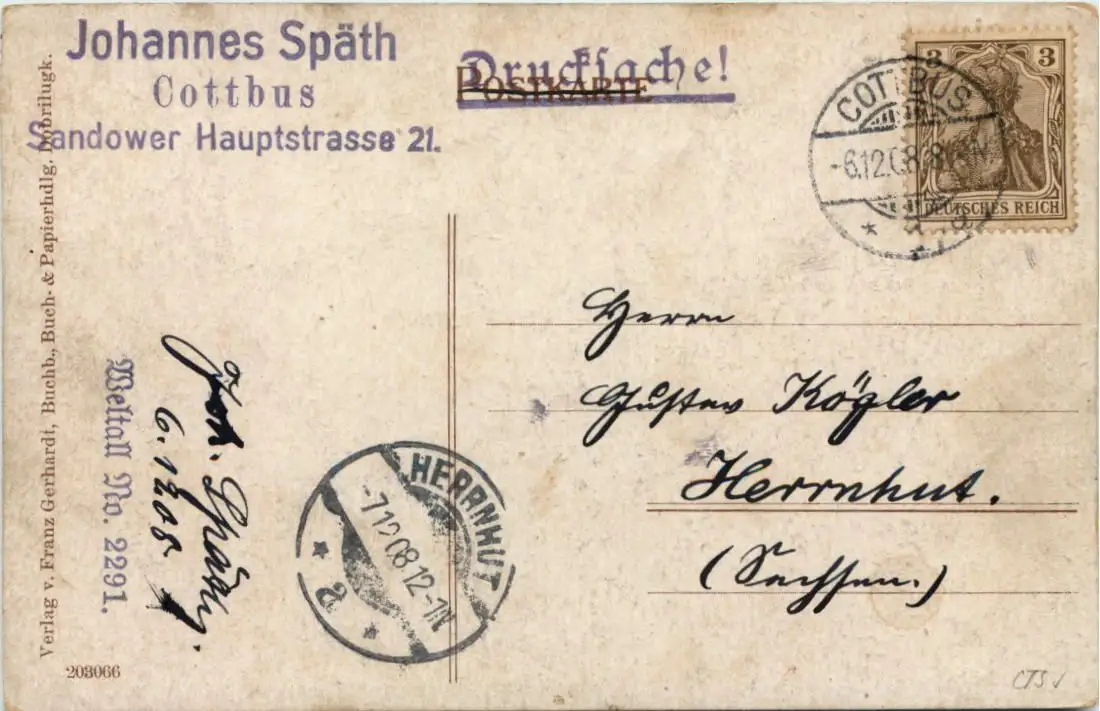 Johannes Späth
Cottbus
Sandower Hauptstrasse 21.
Drucksache!
POSTKARTE
3 3
DEUTSCHES REICH
COTTBUS
-6.12.08.8
Herrn
Gustav Kögler
Herrnhut.
(Sachsen.)
HERRNHUT
-7.12.08.12-1N
a
Joh. Späth
6.12.08
Weltall No. 2291.
Verlag v. Franz Gerhardt, Buchb., Buch- & Papierhdlg. Dobrilugk.
203066